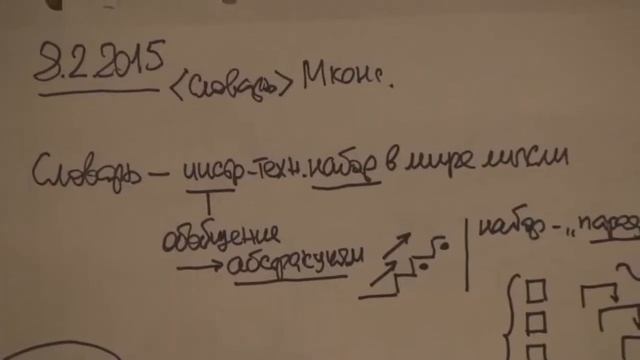 8.2 2015
<словарь> Мконс.
Словарь – инстр-техн. набор в мире мысли
обобщение
→ абстракции
набор – „параз